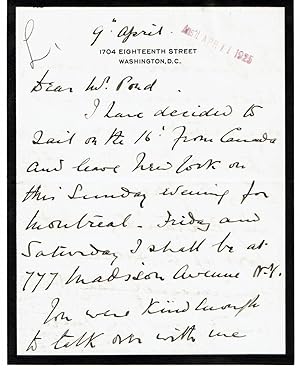 9th April.
1704 EIGHTEENTH STREET
WASHINGTON, D.C.
APR 11 1925
Dear Mr Pond.
I have decided to
sail on the 16th from Canada
and leave New York on
this Sunday evening for
Montreal. Friday and
Saturday I shall be at
777 Madison Avenue N.Y.
You were kind enough
to talk over with me